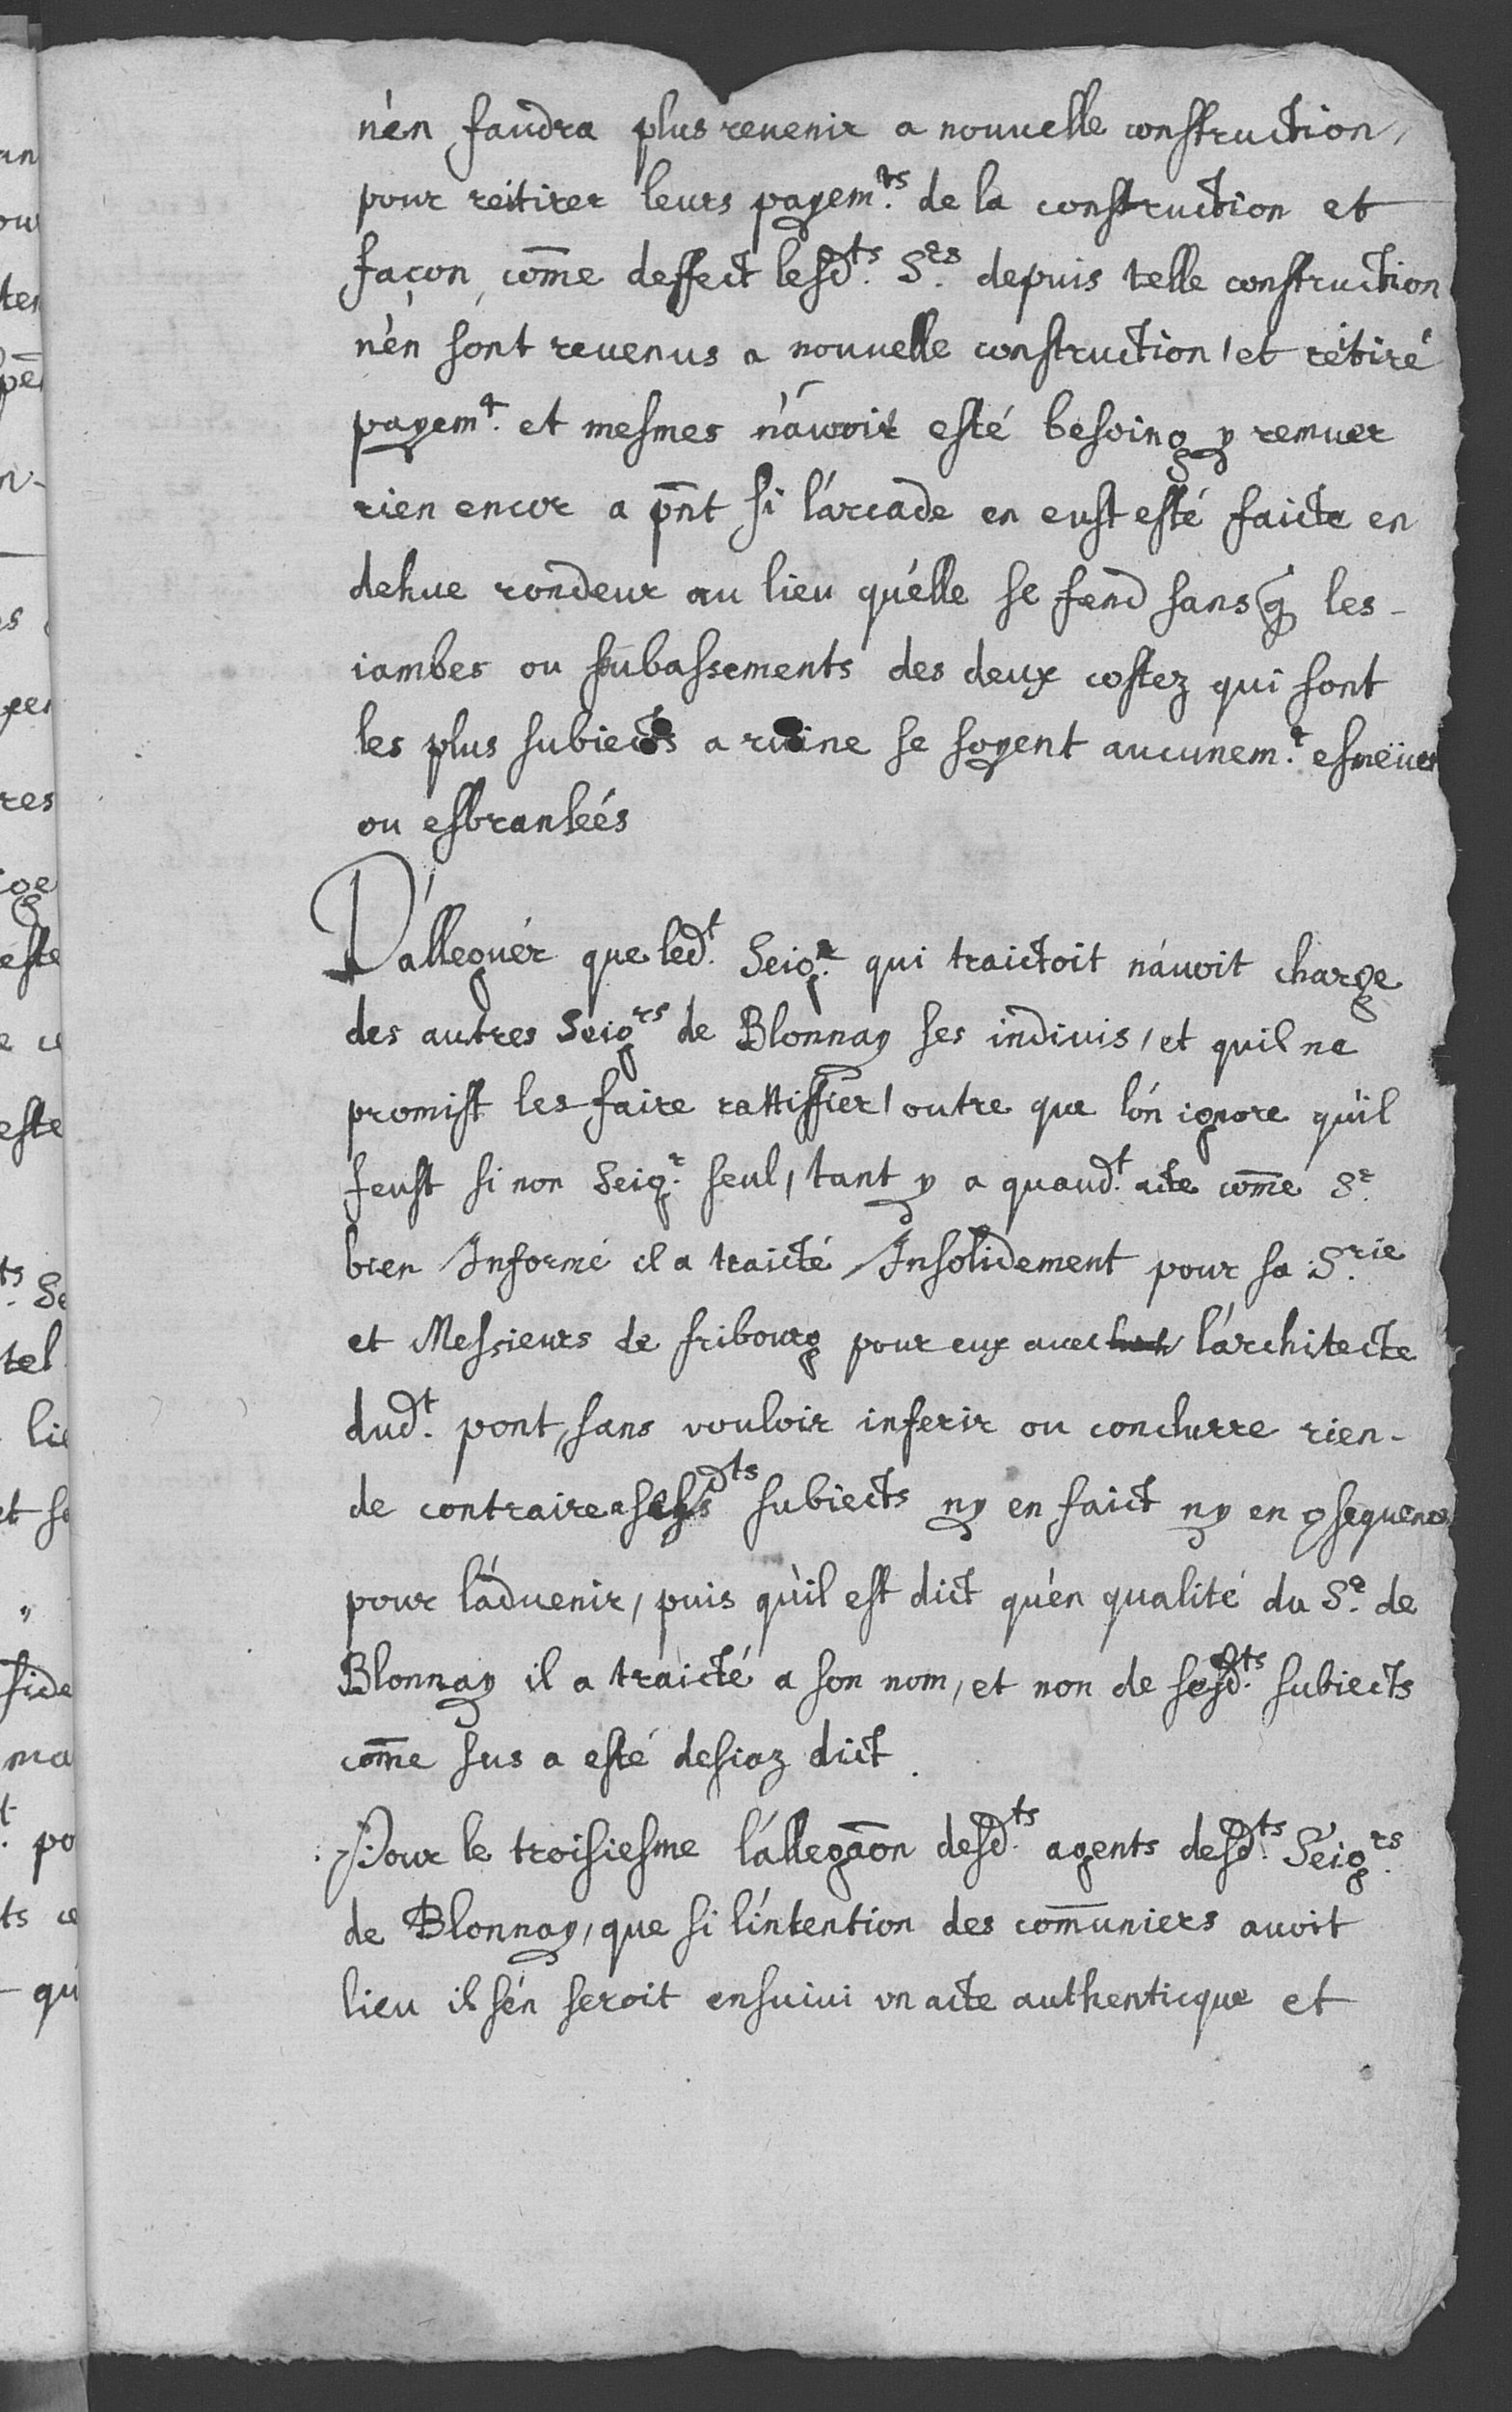 n'en faudra plus revenir a nouvelle construction,
pour reitirer leurs payem.ts de la construction et
façon, com̄e deffect lesd.ts S.rs depuis telle construction
n'en sont revenus a nouvelle construction, et rétiré
payem.t et mesmes n'avoir esté besoing y remuer
rien encor a pn̄t si l'arcade en eust esté faicte en
dehue rondeur au lieu qu'elle se fend sans q les
iambes ou subassements des deux costez qui sont
les plus subiects a ruine se soyent aucunem.t esmeües
ou esbranleés
D'alleguér que led.t Seig.r qui traictoit n'avoit charge
des autres Seig.rs de Blonnay ses indivis, et quil ne
promist les faire rattiffier, outre que l'on ignore qu'il
feust si non Seig.r seul, tant y a quaud.t acte com̄e S.r
bien Informé il a traicté Insolidement pour sa S.rie
et Messieurs de fribourg pour eux avec l'architecte
dud.t pont, sans vouloir inferir ou conclurre rien
de contraire a sesd.ts subiects ny en faict ny en 9sequence
pour l'advenir, puis qu'il est dict qu'en qualité du S.r de
Blonnay il a traicté a son nom, et non de sesd.ts subiects
com̄e sus a esté desiaz dict.
Pour le troisiesme l'allegaōn desd.ts agents desd.ts Seig.rs
de Blonnay, que si l'intention des com̄uniers avoit
lieu il s'en seroit ensuivi vn acte authenticque et